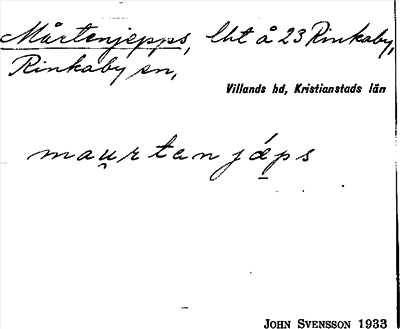 Mårtenjepps, lht å 23 Rinkaby,
Rinkaby sn,
Villands hd, Kristianstads län
mau̯rtenjæ̱ps
JOHN SVENSSON 1933